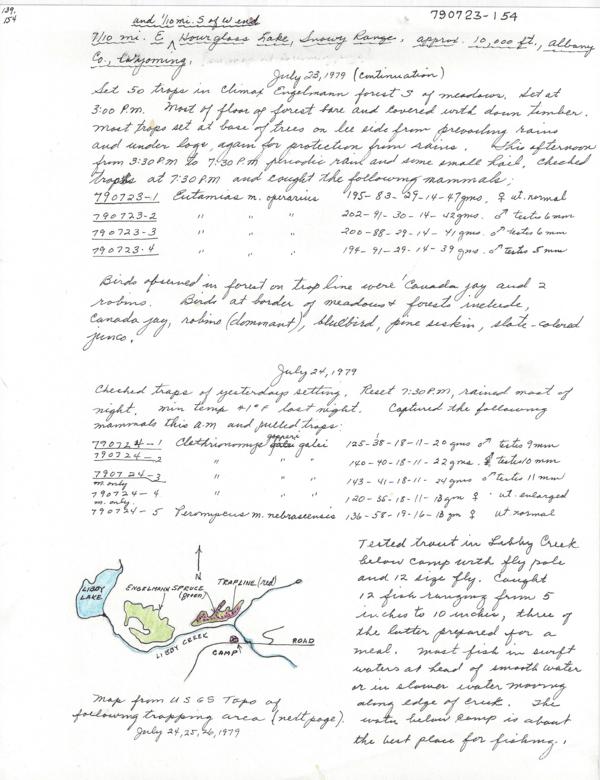 139,
154
790723-154
and 1/10 mi. S of W end
7/10 mi. E Hourglass Lake, Snowy Range, approx. 10,000 ft., Albany
Co., Wyoming.
July 23, 1979 (continuation)
Set 50 traps in climax Engelmann forest S of meadows. Set at
3:00 P.M. Most of floor of forest bare and covered with down timber.
Most traps set at base of trees on lee side from prevailing rains
and under logs, again for protection from rains. This afternoon
from 3:30 P.M to 7:30 P.M periodic rain and some small hail. Checked
traps at 7:30 P.M and caught the following mammals;
790723-1 Eutamias m. operarius 195-83-29-14-47gms. ♀ ut. normal
790723-2 " " " 202-91-30-14-42gms. ♂ testis 6 mm
790723-3 " " " 200-88-29-14-41gms. ♂ testis 6 mm
790723-4 " " " 194-91-29-14-39 gms. ♂ testis 5 mm
Birds observed in forest on trap line were 1 Canada jay and 2
robins. Birds at border of meadows & forest include,
Canada jay, robins (dominant), bluebird, pine siskin, slate-colored
junco.
July 24, 1979
Checked traps of yesterdays setting. Reset 7:30 P.M, rained most of
night. min temp 41°F last night. Captured the following
mammals this a.m and pulled traps:
790724-1 Clethrionomys gapperi galei 125-38-18-11-20 gms ♂ testis 9mm
790724-2 " " " 140-40-18-11-22 gms. testis 10 mm
790724-3 " " " 143-41-18-11-24 gms ♂ testis 11 mm
m. only
790724-4 " " " 120-35-18-11-18 gm ♀ ut. enlarged
m. only.
790724-5 Peromyscus m. nebrascensis 136-58-19-16-18 gm ♀ ut normal
N
LIBBY
LAKE
ENGELMANN SPRUCE
(green)
TRAPLINE (red)
LIBBY CREEK
CAMP
ROAD
Map from USGS Topo of
following trapping area (next page).
July 24, 25, 26, 1979
Tested trout in Libby Creek
below camp with fly pole
and 12 size fly. Caught
12 fish ranging from 5
inches to 10 inches, three of
the latter prepared for a
meal. Most fish in swift
waters at head of smooth water
or in slower water moving
along edge of creek. The
water below camp is about
the best place for fishing.